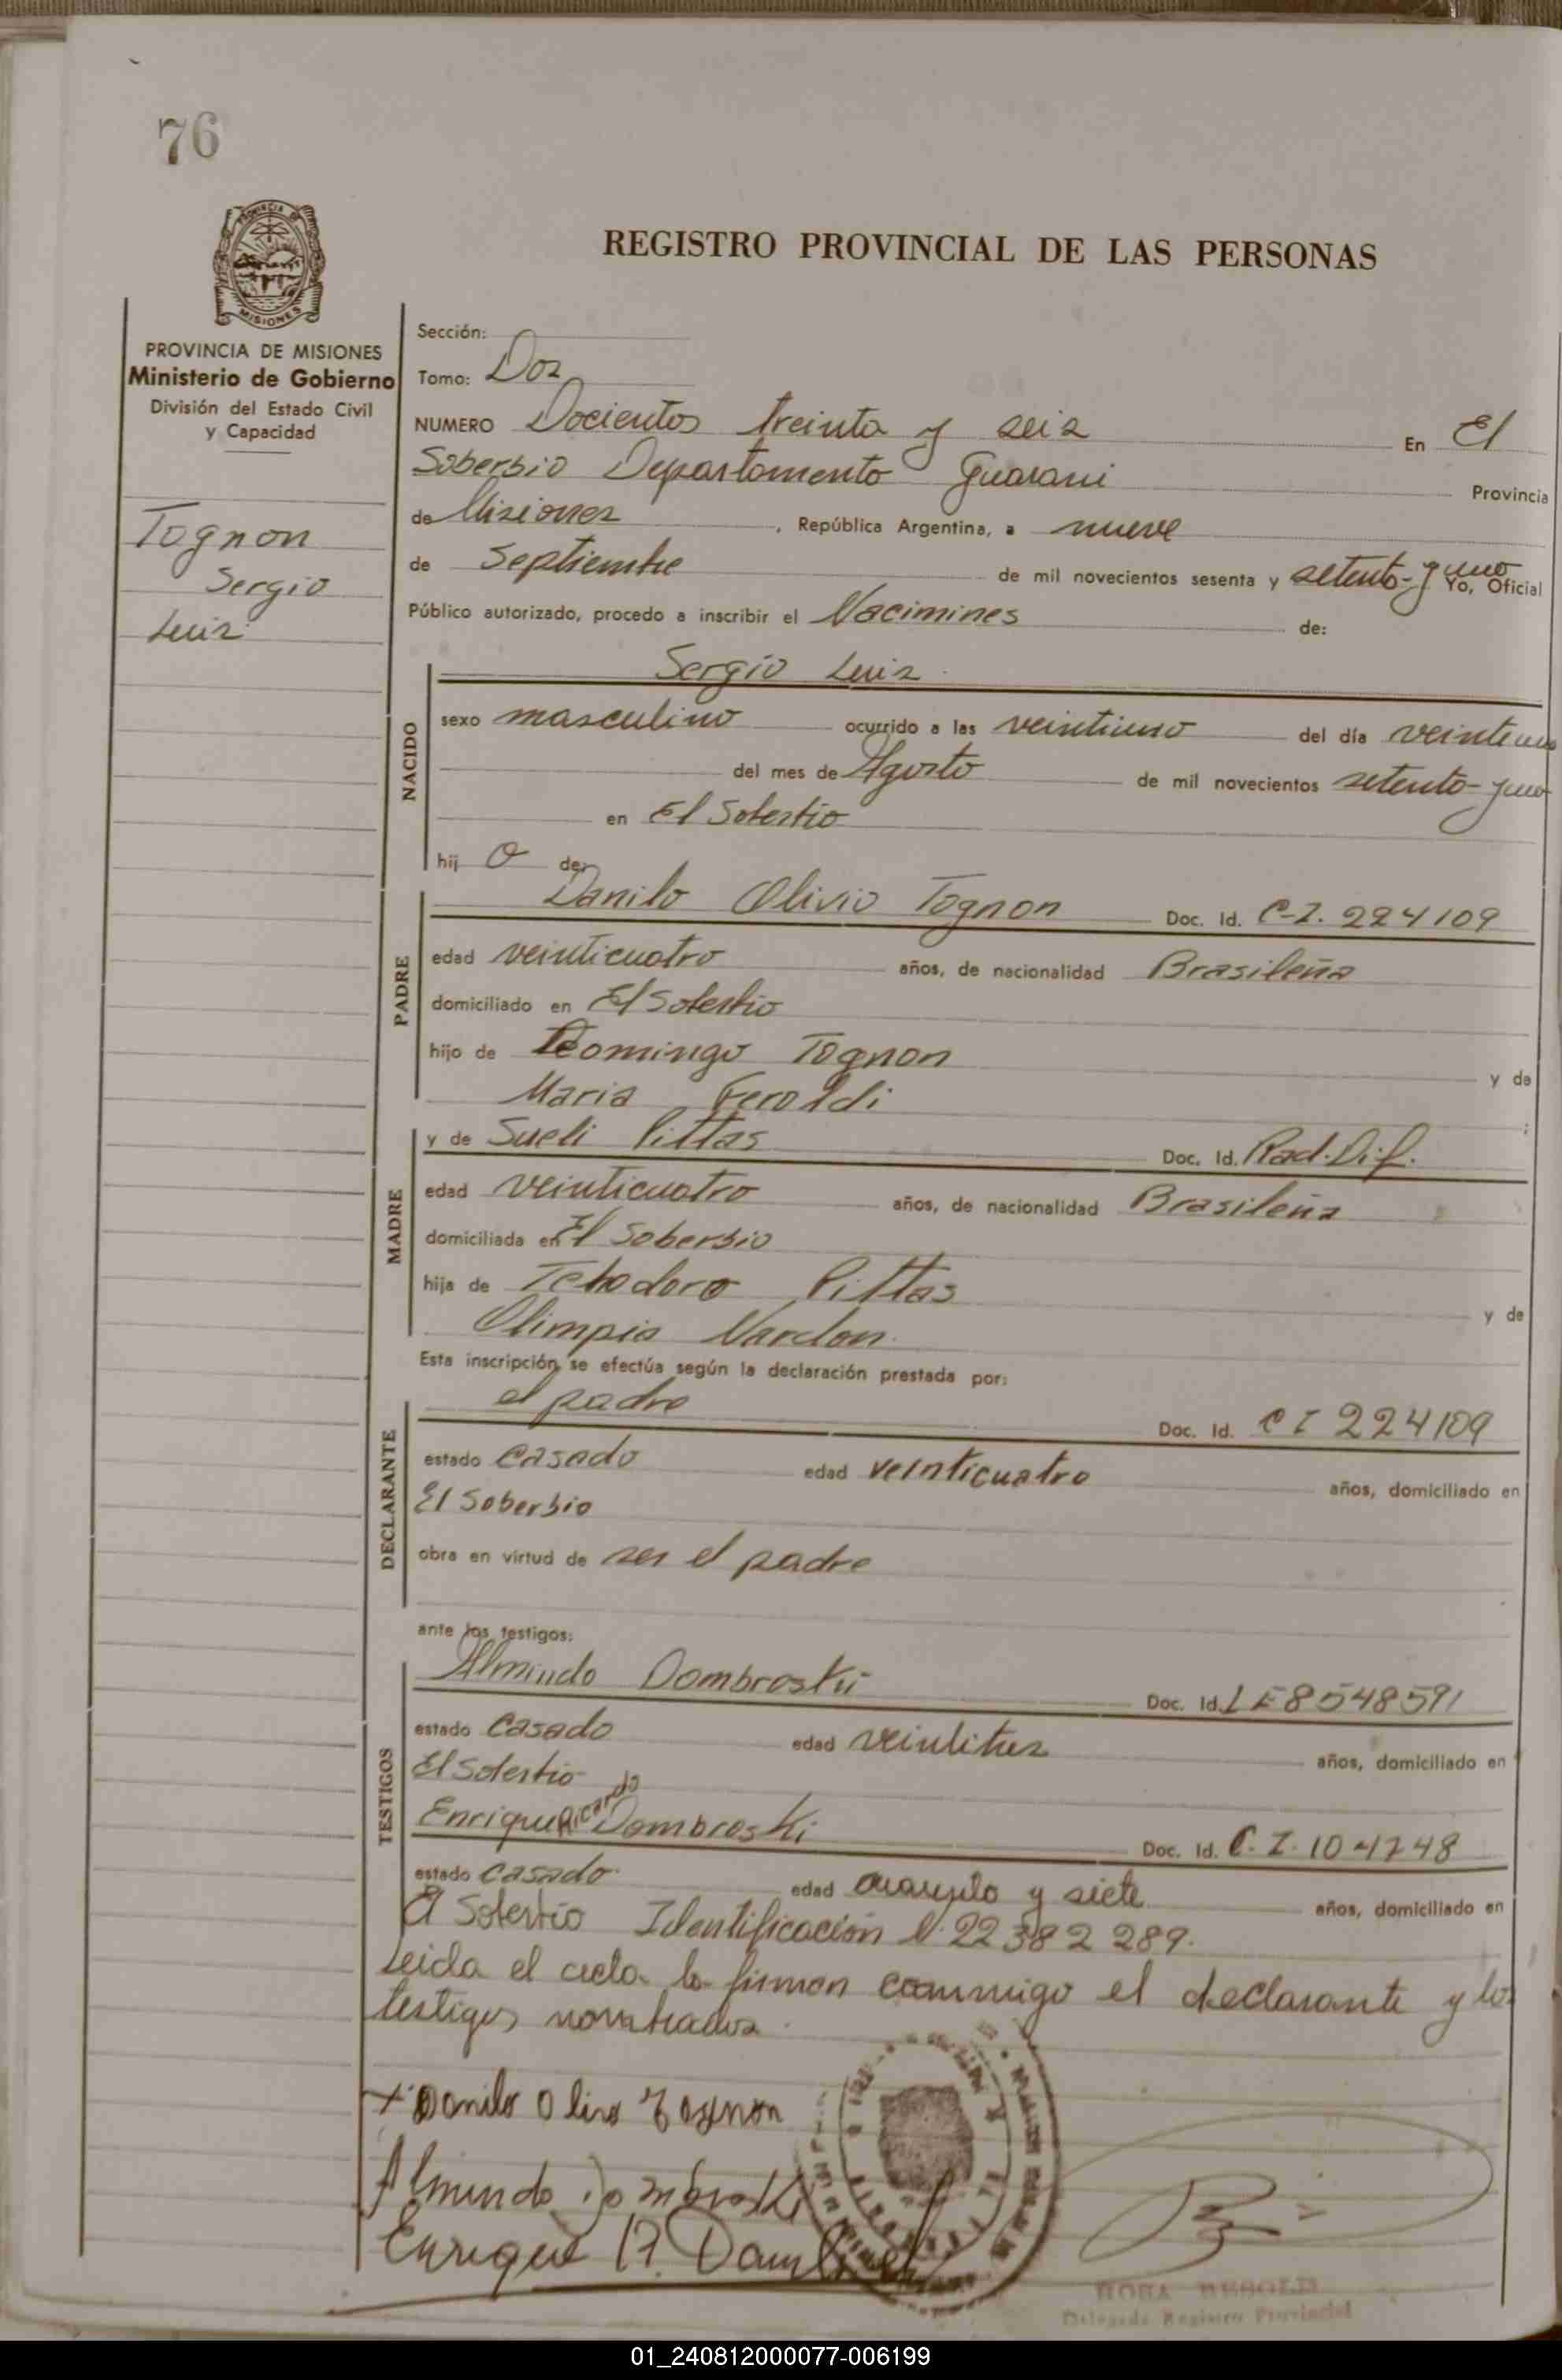 76
PROVINCIA DE
MISIONES
REGISTRO PROVINCIAL DE LAS PERSONAS
PROVINCIA DE MISIONES
Ministerio de Gobierno
División del Estado Civil
y Capacidad
Tognon
Sergio
Luis
Sección:
Tomo: Dos
NUMERO Docientos treinta y seis En El
Soberbio Departamento Guarani Provincia
de Misiones, República Argentina, a nueve
de Septiembre de mil novecientos sesenta y setenta y uno Yo, Oficial
Público autorizado, procedo a inscribir el Nacimines de:
NACIDO
Sergio Luis
sexo masculino ocurrido a las veintiuno del día veintiuno
del mes de Agosto de mil novecientos setenta y uno
en El Soberbio
hij o de:
PADRE
Danilo Olivio Tognon Doc. Id. C-I. 224109
edad veinticuatro años, de nacionalidad Brasileña
domiciliado en El Soberbio
hijo de Domingo Tognon y de
Maria Feroldi
MADRE
y de Sueli Pittas Doc. Id. Rad. Dif.
edad veinticuatro años, de nacionalidad Brasileña
domiciliada en El Soberbio
hija de Tehodoro Pittas y de
Olimpia Nardon
Esta inscripción se efectúa según la declaración prestada por:
DECLARANTE
el padre Doc. Id. C I 224109
estado Casado edad veinticuatro años, domiciliado en
El Soberbio
obra en virtud de ser el padre
ante los testigos:
TESTIGOS
Almindo Dombroski Doc. Id. L E 8548591
estado Casado edad veintitres años, domiciliado en
El Soberbio
Enrique Ricardo Dombroski Doc. Id. C. I. 104748
estado Casado edad cuarenta y siete años, domiciliado en
El Soberbio Identificación N. 22 382 289.
Leida el acta la firman conmigo el declarante y los
testigos nombrados.
Danilo Olivo Tognon
Almindo Dombroski
Enrique R. Dombroski
ROSA
Delegada Registro Provincial
01_240812000077-006199